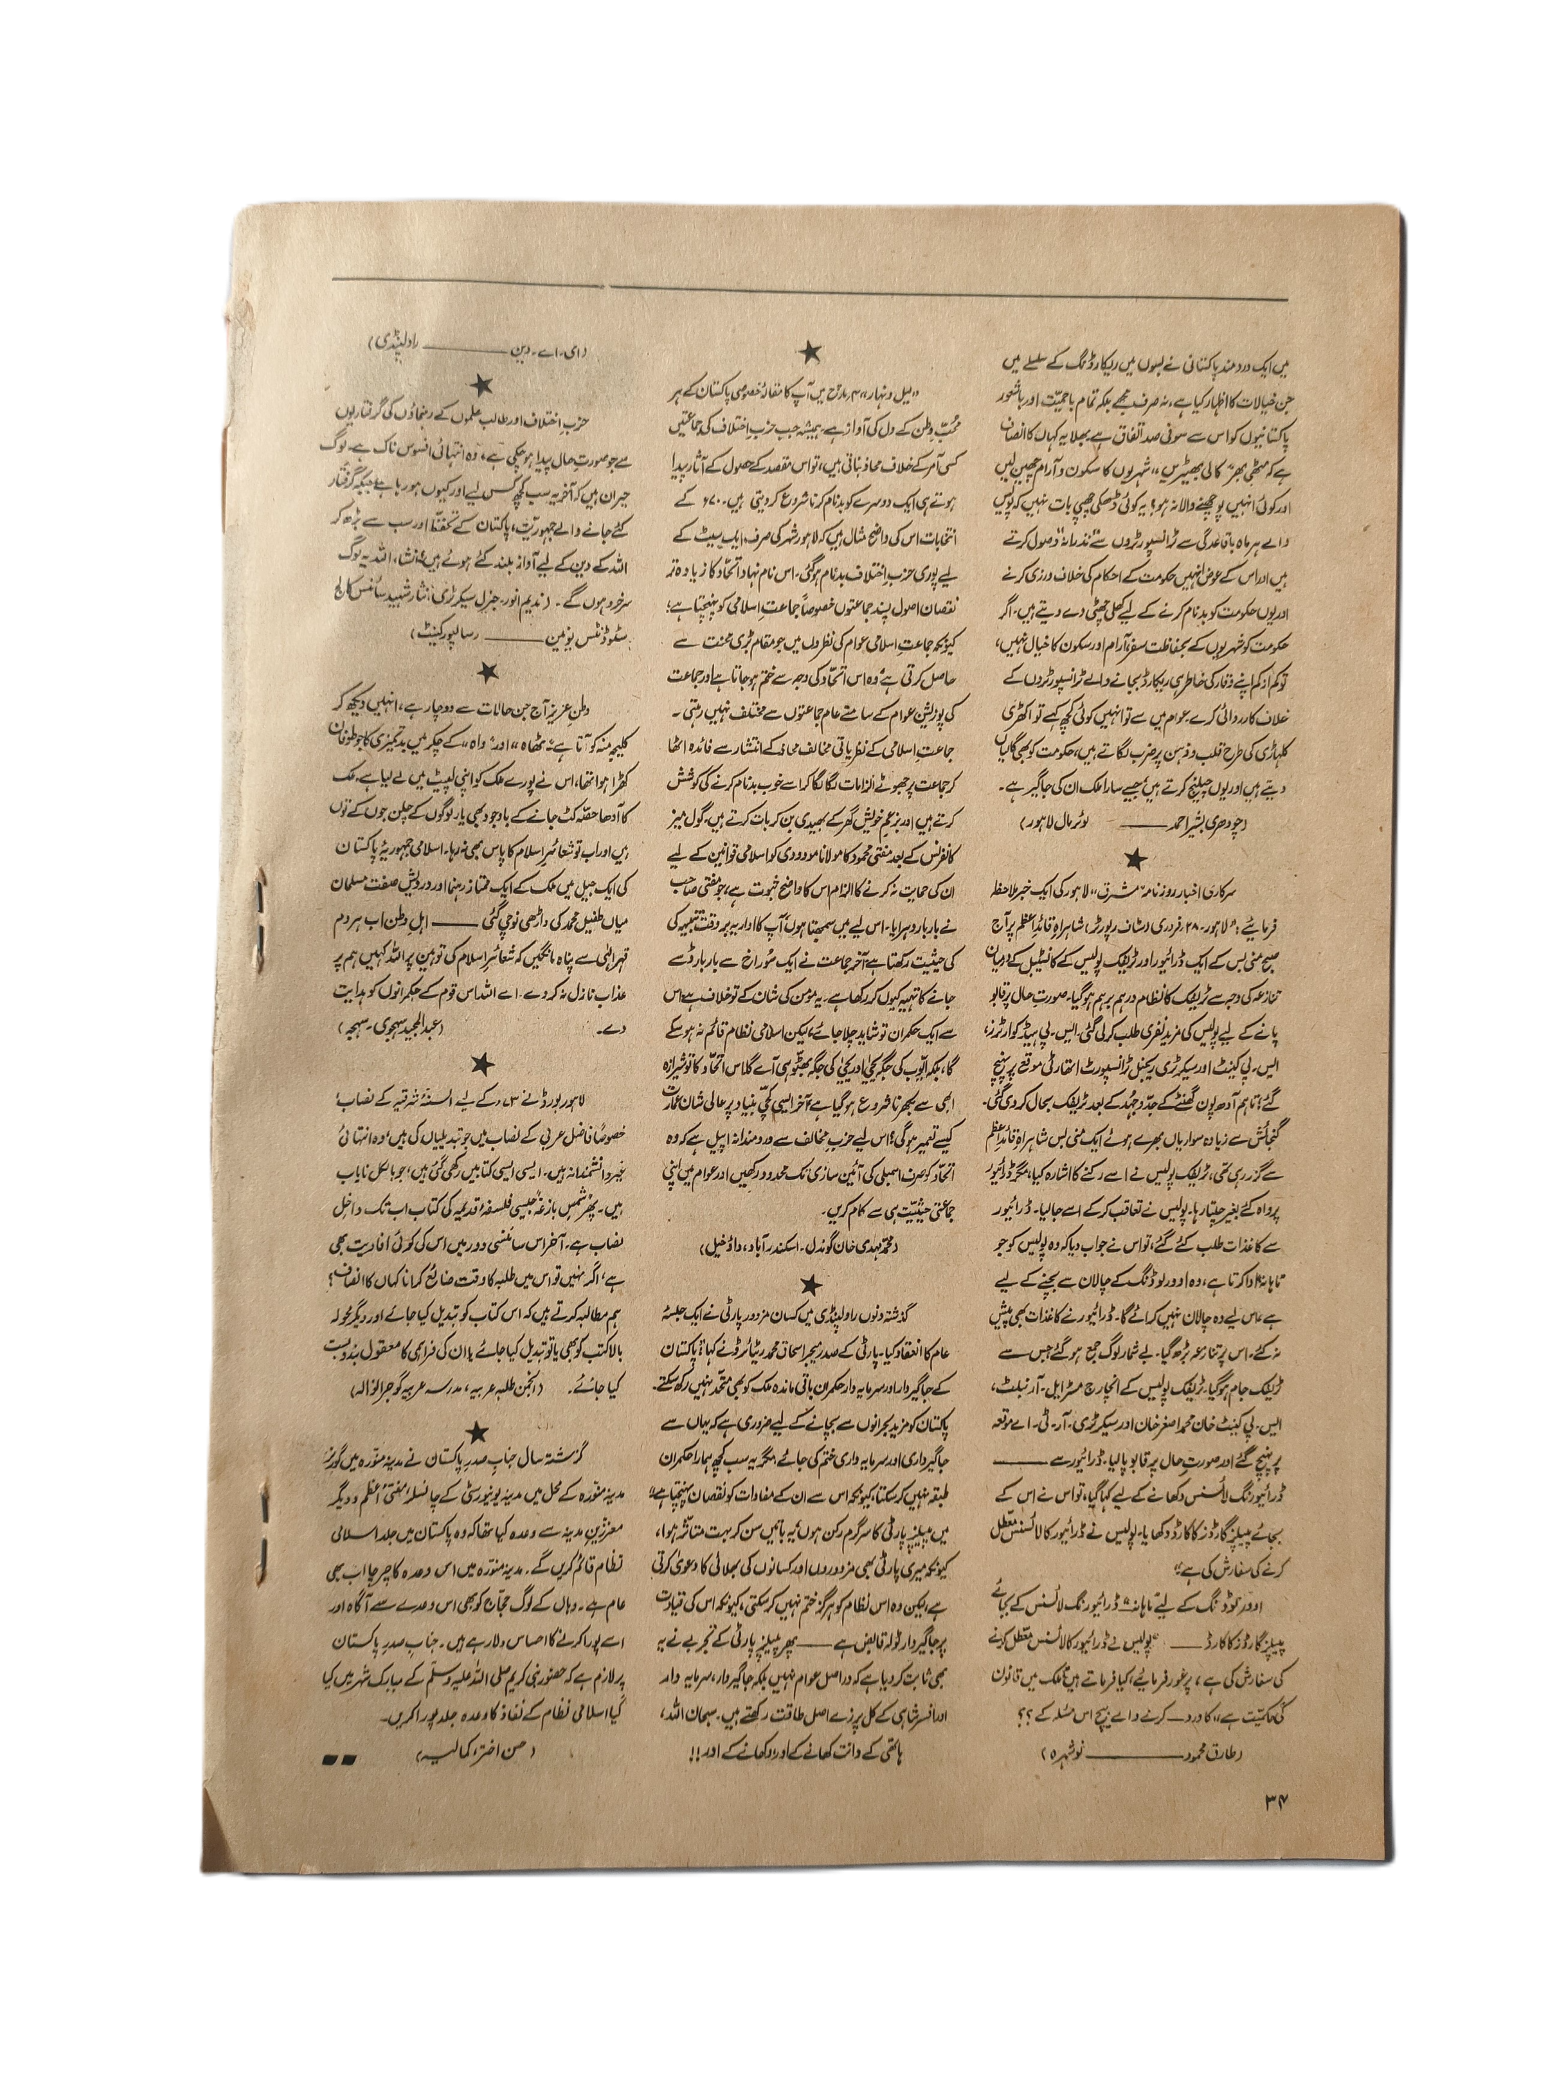 میں ایک دردمند پاکستانی نے بسوں میں ریکارڈنگ کے سلسلے میں
جن خیالات کا اظہار کیا ہے، نہ صرف مجھے بلکہ تمام باحمیّت اور باشعور
پاکستانیوں کو اس سے سو فی صد اتفاق ہے۔ بھلا یہ کہاں کا انصاف
ہے کہ مٹھی بھر "کالی بھیڑیں" شہریوں کا سکون و آرام چھین لیں
اور کوئی انہیں پوچھنے والا نہ ہو؟ یہ کوئی ڈھکی چھپی بات نہیں کہ پولیس
والے ہر ماہ باقاعدگی سے ٹرانسپورٹروں سے "نذرانہ" وصول کرتے
ہیں اور اس کے عوض انہیں حکومت کے احکام کی خلاف ورزی کرنے
اور یوں حکومت کو بدنام کرنے کے لیے کھلی چھٹی دے دیتے ہیں۔ اگر
حکومت کو شہریوں کے بحفاظت سفر، آرام اور سکون کا خیال نہیں،
تو کم از کم اپنے وقار کی خاطر ہی ریکارڈ بجانے والے ٹرانسپورٹروں کے
خلاف کارروائی کرے۔ عوام میں سے تو انہیں کوئی کچھ کہے تو اکھڑی
کلہاڑی کی طرح قلب و ذہن پر ضرب لگاتے ہیں، حکومت کو بھی گالیاں
دیتے ہیں اور یوں چیلنج کرتے ہیں جیسے سارا ملک ان کی جاگیر ہے۔
(چودھری بشیر احمد ——— لوئر مال لاہور)
★
سرکاری اخبار روزنامہ "مشرق" لاہور کی ایک خبر ملاحظہ
فرمائیے: "لاہور۔ ۲۸ فروری (سٹاف رپورٹر) شاہراہِ قائداعظم پر آج
صبح منی بس کے ایک ڈرائیور اور ٹریفک پولیس کے کانسٹیبل کے درمیان
تنازعہ کی وجہ سے ٹریفک کا نظام درہم برہم ہو گیا۔ صورتِ حال پر قابو
پانے کے لیے پولیس کی مزید نفری طلب کر لی گئی۔ ایس۔ پی ہیڈ کوارٹرز،
ایس۔ پی کینٹ اور سیکرٹری ریجنل ٹرانسپورٹ اتھارٹی موقع پر پہنچ
گئے؛ تاہم آدھ پون گھنٹے کے جدّوجُہد کے بعد ٹریفک بحال کر دی گئی۔
گنجائش سے زیادہ سواریاں بھرے ہوئے ایک منی بس شاہراہِ قائداعظم
سے گزر رہی تھی، ٹریفک پولیس نے اسے رکنے کا اشارہ کیا، مگر ڈرائیور
پرواہ کئے بغیر چلتا رہا۔ پولیس نے تعاقب کر کے اسے جا لیا۔ ڈرائیور
سے کاغذات طلب کئے گئے، تو اس نے جواب دیا کہ وہ پولیس کو جو
"ماہانہ" ادا کرتا ہے، وہ اوورلوڈنگ کے چالان سے بچنے کے لیے
ہے، اس لیے وہ چالان نہیں کرائے گا۔ ڈرائیور نے کاغذات بھی پیش
نہ کئے، اس پر تنازعہ بڑھ گیا۔ بے شمار لوگ جمع ہو گئے جس سے
ٹریفک جام ہو گیا۔ ٹریفک پولیس کے انچارج مسٹر ایل۔ آر نبلٹ،
ایس۔ پی کینٹ خان محمد اصغر خان اور سیکرٹری۔ آر۔ ٹی۔ اے موقعہ
پر پہنچ گئے اور صورتِ حال پر قابو پا لیا۔ ڈرائیور سے ———
ڈرائیورنگ لائسنس دکھانے کے لیے کہا گیا، تو اس نے اس کے
بجائے پیپلز گارڈز کا کارڈ دکھایا۔ پولیس نے ڈرائیور کا لائسنس معطّل
کرنے کی سفارش کی ہے۔"
اوورلوڈنگ کے لیے ماہانہ — ڈرائیورنگ لائسنس کے بجائے
پیپلز گارڈز کا کارڈ —— "پولیس نے ڈرائیور کا لائسنس معطل کرنے
کی سفارش کی ہے"، پر غور فرمائیے، کیا فرماتے ہیں "ملک میں قانون
کی حاکمیّت ہے" کا ورد کرنے والے بیچ اس مسئلہ کے ؟؟
(طارق محمود ——— نوشہرہ)
★
"لیل و نہار" ۴ مارچ میں آپ کا مقالۂ خصوصی پاکستان کے ہر
محبِّ وطن کے دل کی آواز ہے۔ ہمیشہ جب حزبِ اختلاف کی جماعتیں
کسی آمر کے خلاف محاذ بناتی ہیں، تو اس مقصد کے حصول کے آثار پیدا
ہوتے ہی ایک دوسرے کو بدنام کرنا شروع کر دیتی ہیں۔ ۷۰ء کے
انتخابات اس کی واضح مثال ہیں کہ لاہور شہر کی صرف ایک سیٹ کے
لیے پوری حزبِ اختلاف بدنام ہو گئی۔ اس نام نہاد اتحّاد کا زیادہ تر
نقصان اصول پسند جماعتوں خصوصاً جماعتِ اسلامی کو پہنچتا ہے؛
کیونکہ جماعتِ اسلامی عوام کی نظروں میں جو مقام بڑی محنت سے
حاصل کرتی ہے وہ اس اتحّاد کی وجہ سے ختم ہو جاتا ہے اور جماعت
کی پوزیشن عوام کے سامنے عام جماعتوں سے مختلف نہیں رہتی۔
جماعتِ اسلامی کے نظریاتی مخالف محاذ کے انتشار سے فائدہ اٹھا
کر جماعت پر جھوٹے الزامات لگا لگا کر اسے خوب بدنام کرنے کی کوشش
کرتے ہیں اور بزعمِ خویش گھر کے بھیدی بن کر بات کرتے ہیں۔ گول میز
کانفرنس کے بعد مفتی محمود کا مولانا مودودی کو اسلامی قوانین کے لیے
ان کی حمایت نہ کرنے کا الزام اس کا واضح ثبوت ہے، جو مفتی صاحب
نے بار بار دہرایا۔ اس لیے میں سمجھتا ہوں آپ کا اداریہ بروقت تنبیہ کی
کی حیثیت رکھتا ہے۔ آخر جماعت نے ایک سُوراخ سے بار بار ڈسے
جانے کا تہیہ کیوں کر رکھا ہے۔ یہ مؤمن کی شان کے تو خلاف ہے اس
سے ایک حکمران تو شاید چلا جائے، لیکن اسلامی نظام قائم نہ ہو سکے
گا، بلکہ ایّوب کی جگہ یحییٰ اور یحییٰ کی جگہ بھٹّو ہی آئے گا۔ اس اتحّاد کا تو شیرازہ
ابھی سے بکھرنا شروع ہو گیا ہے، آخر ایسی کچّی بنیاد پر عالی شان عمارت
کیسے تعمیر ہو گی؟ اس لیے حزبِ مخالف سے دردمندانہ اپیل ہے کہ وہ
اتحّاد کو صرف اسمبلی کی آئین سازی تک محدود رکھیں اور عوام میں اپنی
جماعتی حیثیّت ہی سے کام کریں۔
(محمّد مہدی خان گوندل۔ اسکندر آباد، داؤدخیل)
★
گذشتہ دنوں راولپنڈی میں کسان مزدور پارٹی نے ایک جلسۂ
عام کا انعقاد کیا۔ پارٹی کے صدر میجر اسحاق محمد ریٹائرڈ نے کہا: "پاکستان
کے جاگیردار اور سرمایہ دار حکمران باقی ماندہ ملک کو بھی متحّد نہیں رکھ سکتے۔
پاکستان کو مزید بحرانوں سے بچانے کے لیے ضروری ہے کہ یہاں سے
جاگیرداری اور سرمایہ داری ختم کی جائے، مگر یہ سب کچھ ہمارا حکمران
طبقہ نہیں کر سکتا، کیونکہ اس سے ان کے مفادات کو نقصان پہنچتا ہے"
میں پیپلز پارٹی کا سرگرم رکن ہوں، یہ باتیں سن کر بہت متاثّر ہوا،
کیونکہ میری پارٹی بھی مزدوروں اور کسانوں کی بھلائی کا دعویٰ کرتی
ہے، لیکن وہ اس نظام کو ہرگز ختم نہیں کر سکتی، کیونکہ اس کی قیادت
پر جاگیردار ٹولہ قابض ہے —— پھر پیپلز پارٹی کے تجربے نے یہ
بھی ثابت کر دیا ہے کہ دراصل عوام نہیں بلکہ جاگیردار، سرمایہ دار
اور افسر شاہی کے کل پرزے اصل طاقت رکھتے ہیں۔ سبحان اللہ،
ہاتھی کے دانت کھانے کے اور، دکھانے کے اور!!
(ای۔ اے۔ دین ——— راولپنڈی)
★
حزبِ اختلاف اور طالب علموں کے رہنماؤں کی گرفتاریوں
سے جو صورتِ حال پیدا ہو چکی ہے، وہ انتہائی افسوس ناک ہے۔ لوگ
حیران ہیں کہ آخر یہ سب کچھ کس لیے اور کیوں ہو رہا ہے جبکہ گرفتار
کئے جانے والے جمہوریّت، پاکستان کے تحفظّ اور سب سے بڑھ کر
اللہ کے دین کے لیے آواز بلند کئے ہوئے ہیں؟ انشاء اللہ یہ لوگ
سرخرو ہوں گے۔ (ندیم انور، جنرل سیکرٹری، نثار شہید سائنس کالج
سٹوڈنٹس یونین ——— رسالپور کینٹ)
★
وطنِ عزیز آج جن حالات سے دوچار ہے، انہیں دیکھ کر
کلیجہ منہ کو آتا ہے۔ "ٹھاہ" اور "واہ" کے چکر میں بدتمیزی کا جو طوفان
کھڑا ہوا تھا، اس نے پورے ملک کو اپنی لپیٹ میں لے لیا ہے۔ ملک
کا آدھا حصّہ کٹ جانے کے باوجود بھی یار لوگوں کے چلن جوں کے توں
ہیں اور اب تو شعائرِ اسلام کا پاس بھی نہ رہا۔ اسلامی جمہوریۂ پاکستان
کی ایک جیل میں ملک کے ایک ممتاز رہنما اور درویش صفت مسلمان
میاں طفیل محمد کی داڑھی نوچی گئی —— اہلِ وطن اب ہر دم
قہرِ الٰہی سے پناہ مانگیں کہ شعائرِ اسلام کی توہین پر اللہ کہیں ہم پر
عذاب نازل نہ کر دے۔ اے اللہ اس قوم کے حکمرانوں کو ہدایت
دے۔ (عبدالمجید سہجوی۔ سہجہ)
★
لاہور بورڈ نے ۷۳ء کے لیے السنۂ شرقیہ کے نصاب،
خصوصاً فاضل عربی کے نصاب میں جو تبدیلیاں کی ہیں، وہ انتہائی
غیر دانشمندانہ ہیں۔ ایسی ایسی کتابیں رکھی گئی ہیں، جو بالکل نایاب
ہیں۔ پھر "شمسِ بازغہ" جیسی فلسفۂ قدیمہ کی کتاب اب تک داخلِ
نصاب ہے۔ آخر اس سائنسی دور میں اس کی کوئی افادیت بھی
ہے، اگر نہیں تو اس میں طلبہ کا وقت ضائع کرنا کہاں کا انصاف؟
ہم مطالبہ کرتے ہیں کہ اس کتاب کو تبدیل کیا جائے اور دیگر محولہ
بالا کتب کو بھی یا تو تبدیل کیا جائے یا ان کی فراہمی کا معقول بندوبست
کیا جائے۔ (انجمن طلبہ عربیہ، مدرسہ عربیہ گوجرانوالہ)
★
گزشتہ سال جنابِ صدرِ پاکستان نے مدینہ منوّرہ میں گورنر
مدینہ منوّرہ کے محل میں مدینہ یونیورسٹی کے چانسلر، مفتئ اعظم و دیگر
معزّزینِ مدینہ سے وعدہ کیا تھا کہ وہ پاکستان میں جلد اسلامی
نظام قائم کریں گے۔ مدینہ منوّرہ میں اس وعدہ کا چرچا اب بھی
عام ہے۔ وہاں کے لوگ حجّاج کو بھی اس وعدے سے آگاہ اور
اسے پورا کرنے کا احساس دلا رہے ہیں۔ جنابِ صدرِ پاکستان
پر لازم ہے کہ حضور نبی کریم صلی اللہ علیہ وسلّم کے مبارک شہر میں کیا
گیا اسلامی نظام کے نفاذ کا وعدہ جلد پورا کریں۔
(حسن اختر، کمالیہ)
۳۴